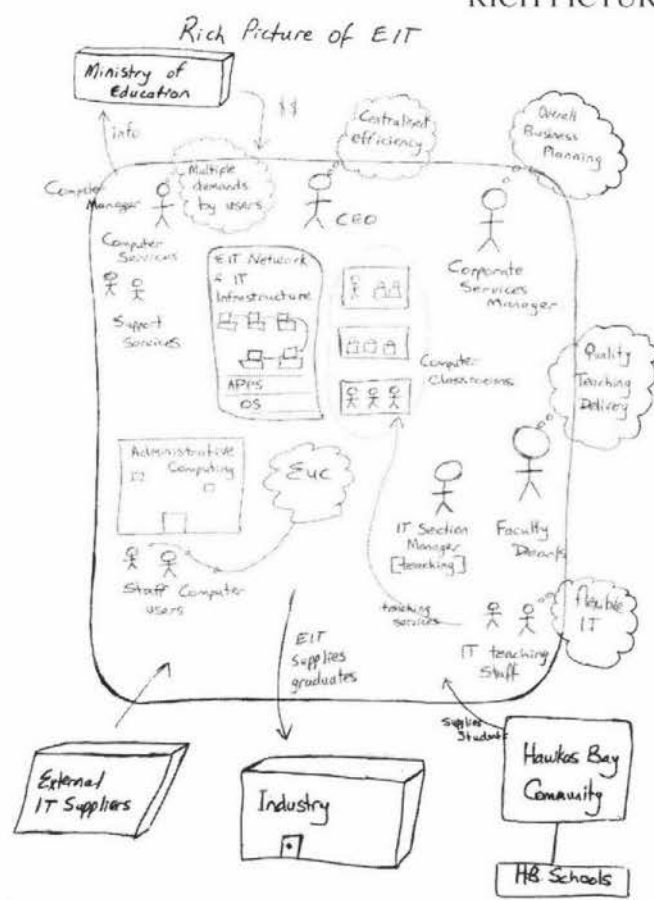 RICH PICTUR
Rich Picture of EIT
Ministry of
Education
$$
info
Centralised
efficiency
Overall
Business
Planning
Computer
Manager
Multiple
demands
by users
CEO
Corporate
Services
Manager
Computer
Services
Support
Services
EIT Network
& IT
Infrastructure
APPS
OS
Computer
Classrooms
Quality
Teaching
Delivery
Administrative
Computing
EUC
IT Section
Manager
[teaching]
Faculty
Staff Computer
users
teaching
services
IT teaching
Staff
flexible
IT
EIT
Supplies
graduates
Supplies
Student
External
IT Suppliers
Industry
Hawkes Bay
Community
HB Schools